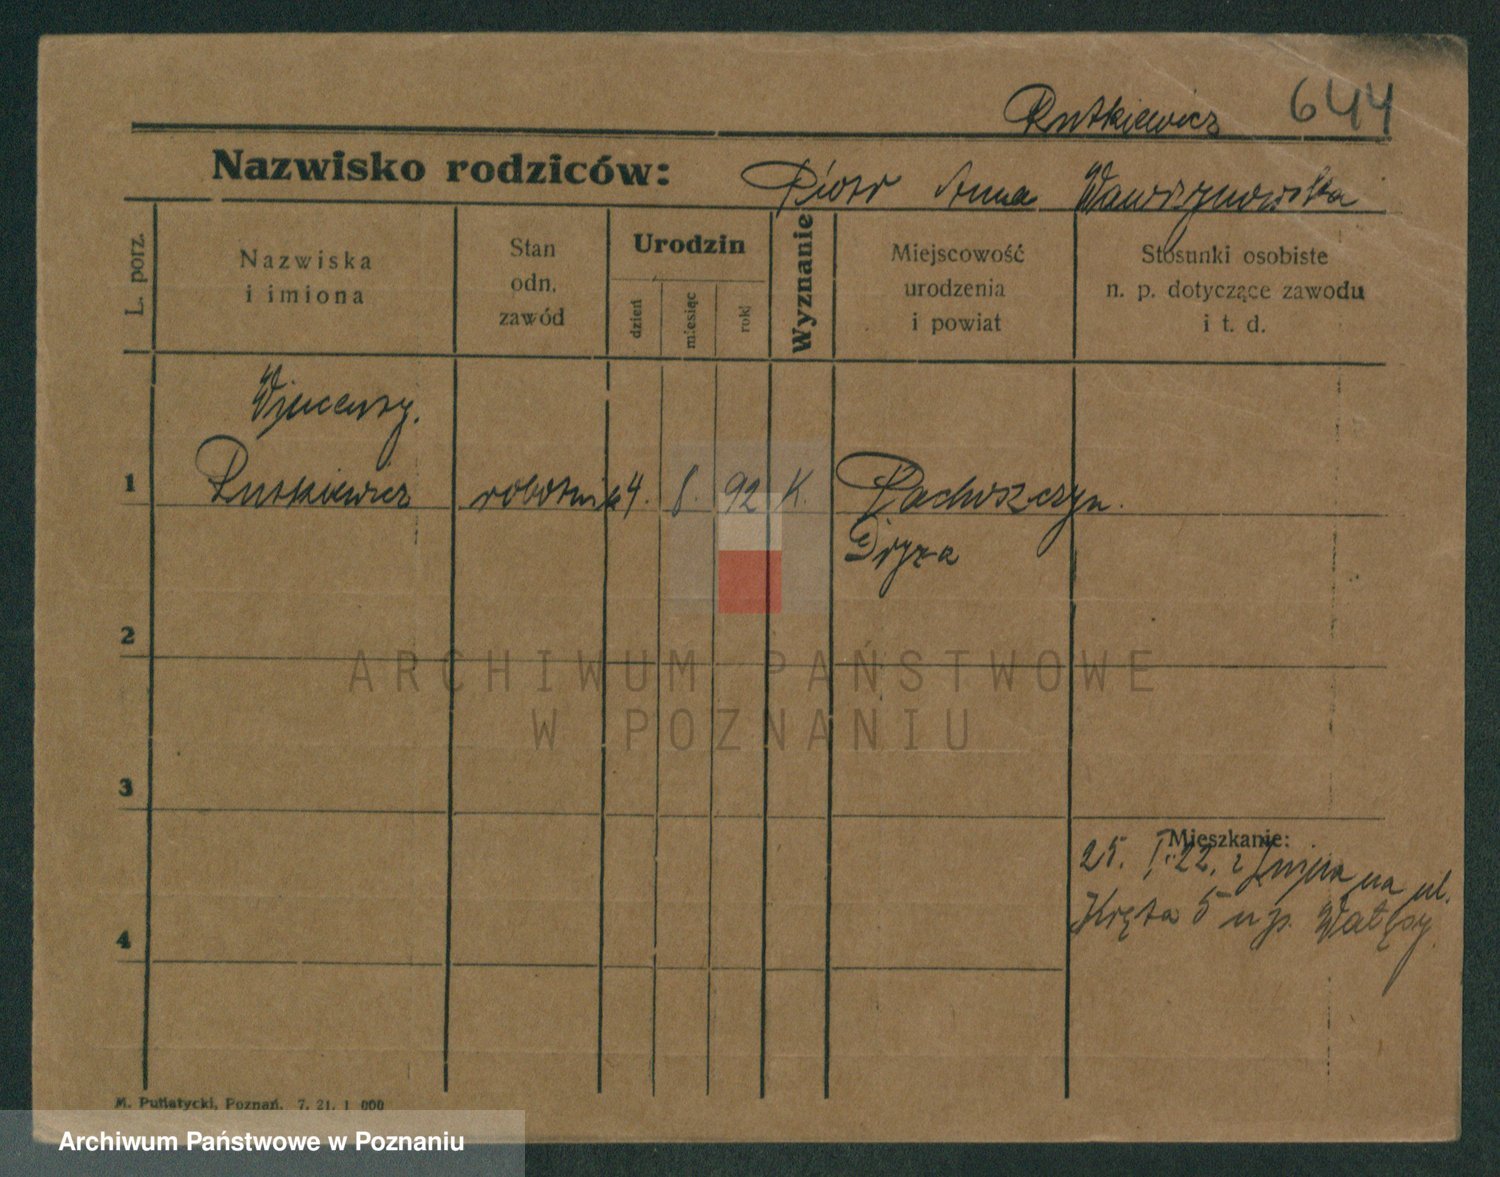 Rutkiewicz 644
Nazwisko rodziców: Piotr Anna Wawrzynowska
L. porz.
Nazwiska
i imiona
Stan
odn.
zawód
Urodzin
dzień
miesiąc
rok
Wyznanie
Miejscowość
urodzenia
i powiat
Stosunki osobiste
n. p. dotyczące zawodu
i t. d.
Wincenty.
1 Rutkiewicz robotnik 4. 8. 92 K.
2
ARCHIWUM PAŃSTWOWE
W POZNANIU
3
Mieszkanie:
25. I. 22. z Żnina na ul.
Kręta 5 u p.
4
M. Putiatycki, Poznań. 7. 21. 1 000
Archiwum Państwowe w Poznaniu